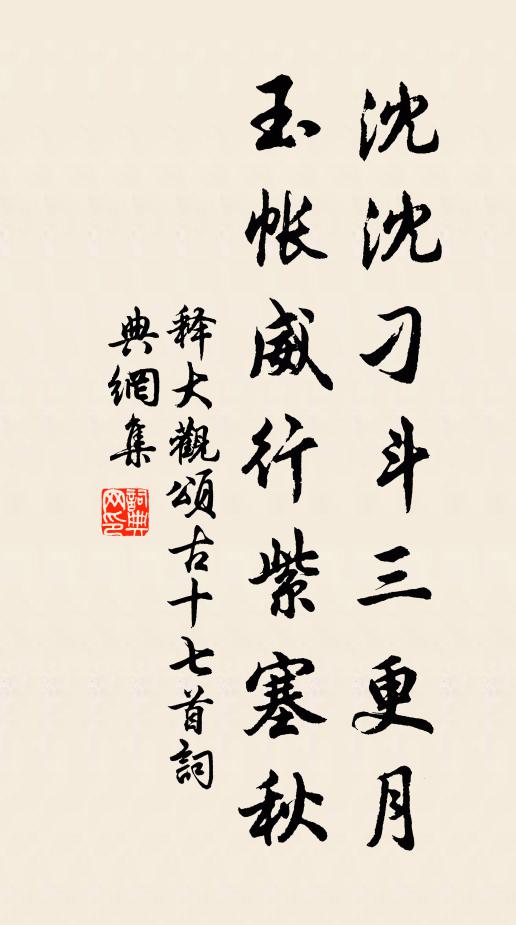 沈沈刁斗三更月
玉帐威行紫塞秋
释大觀頌古十七首詞
典網集
詞典网印